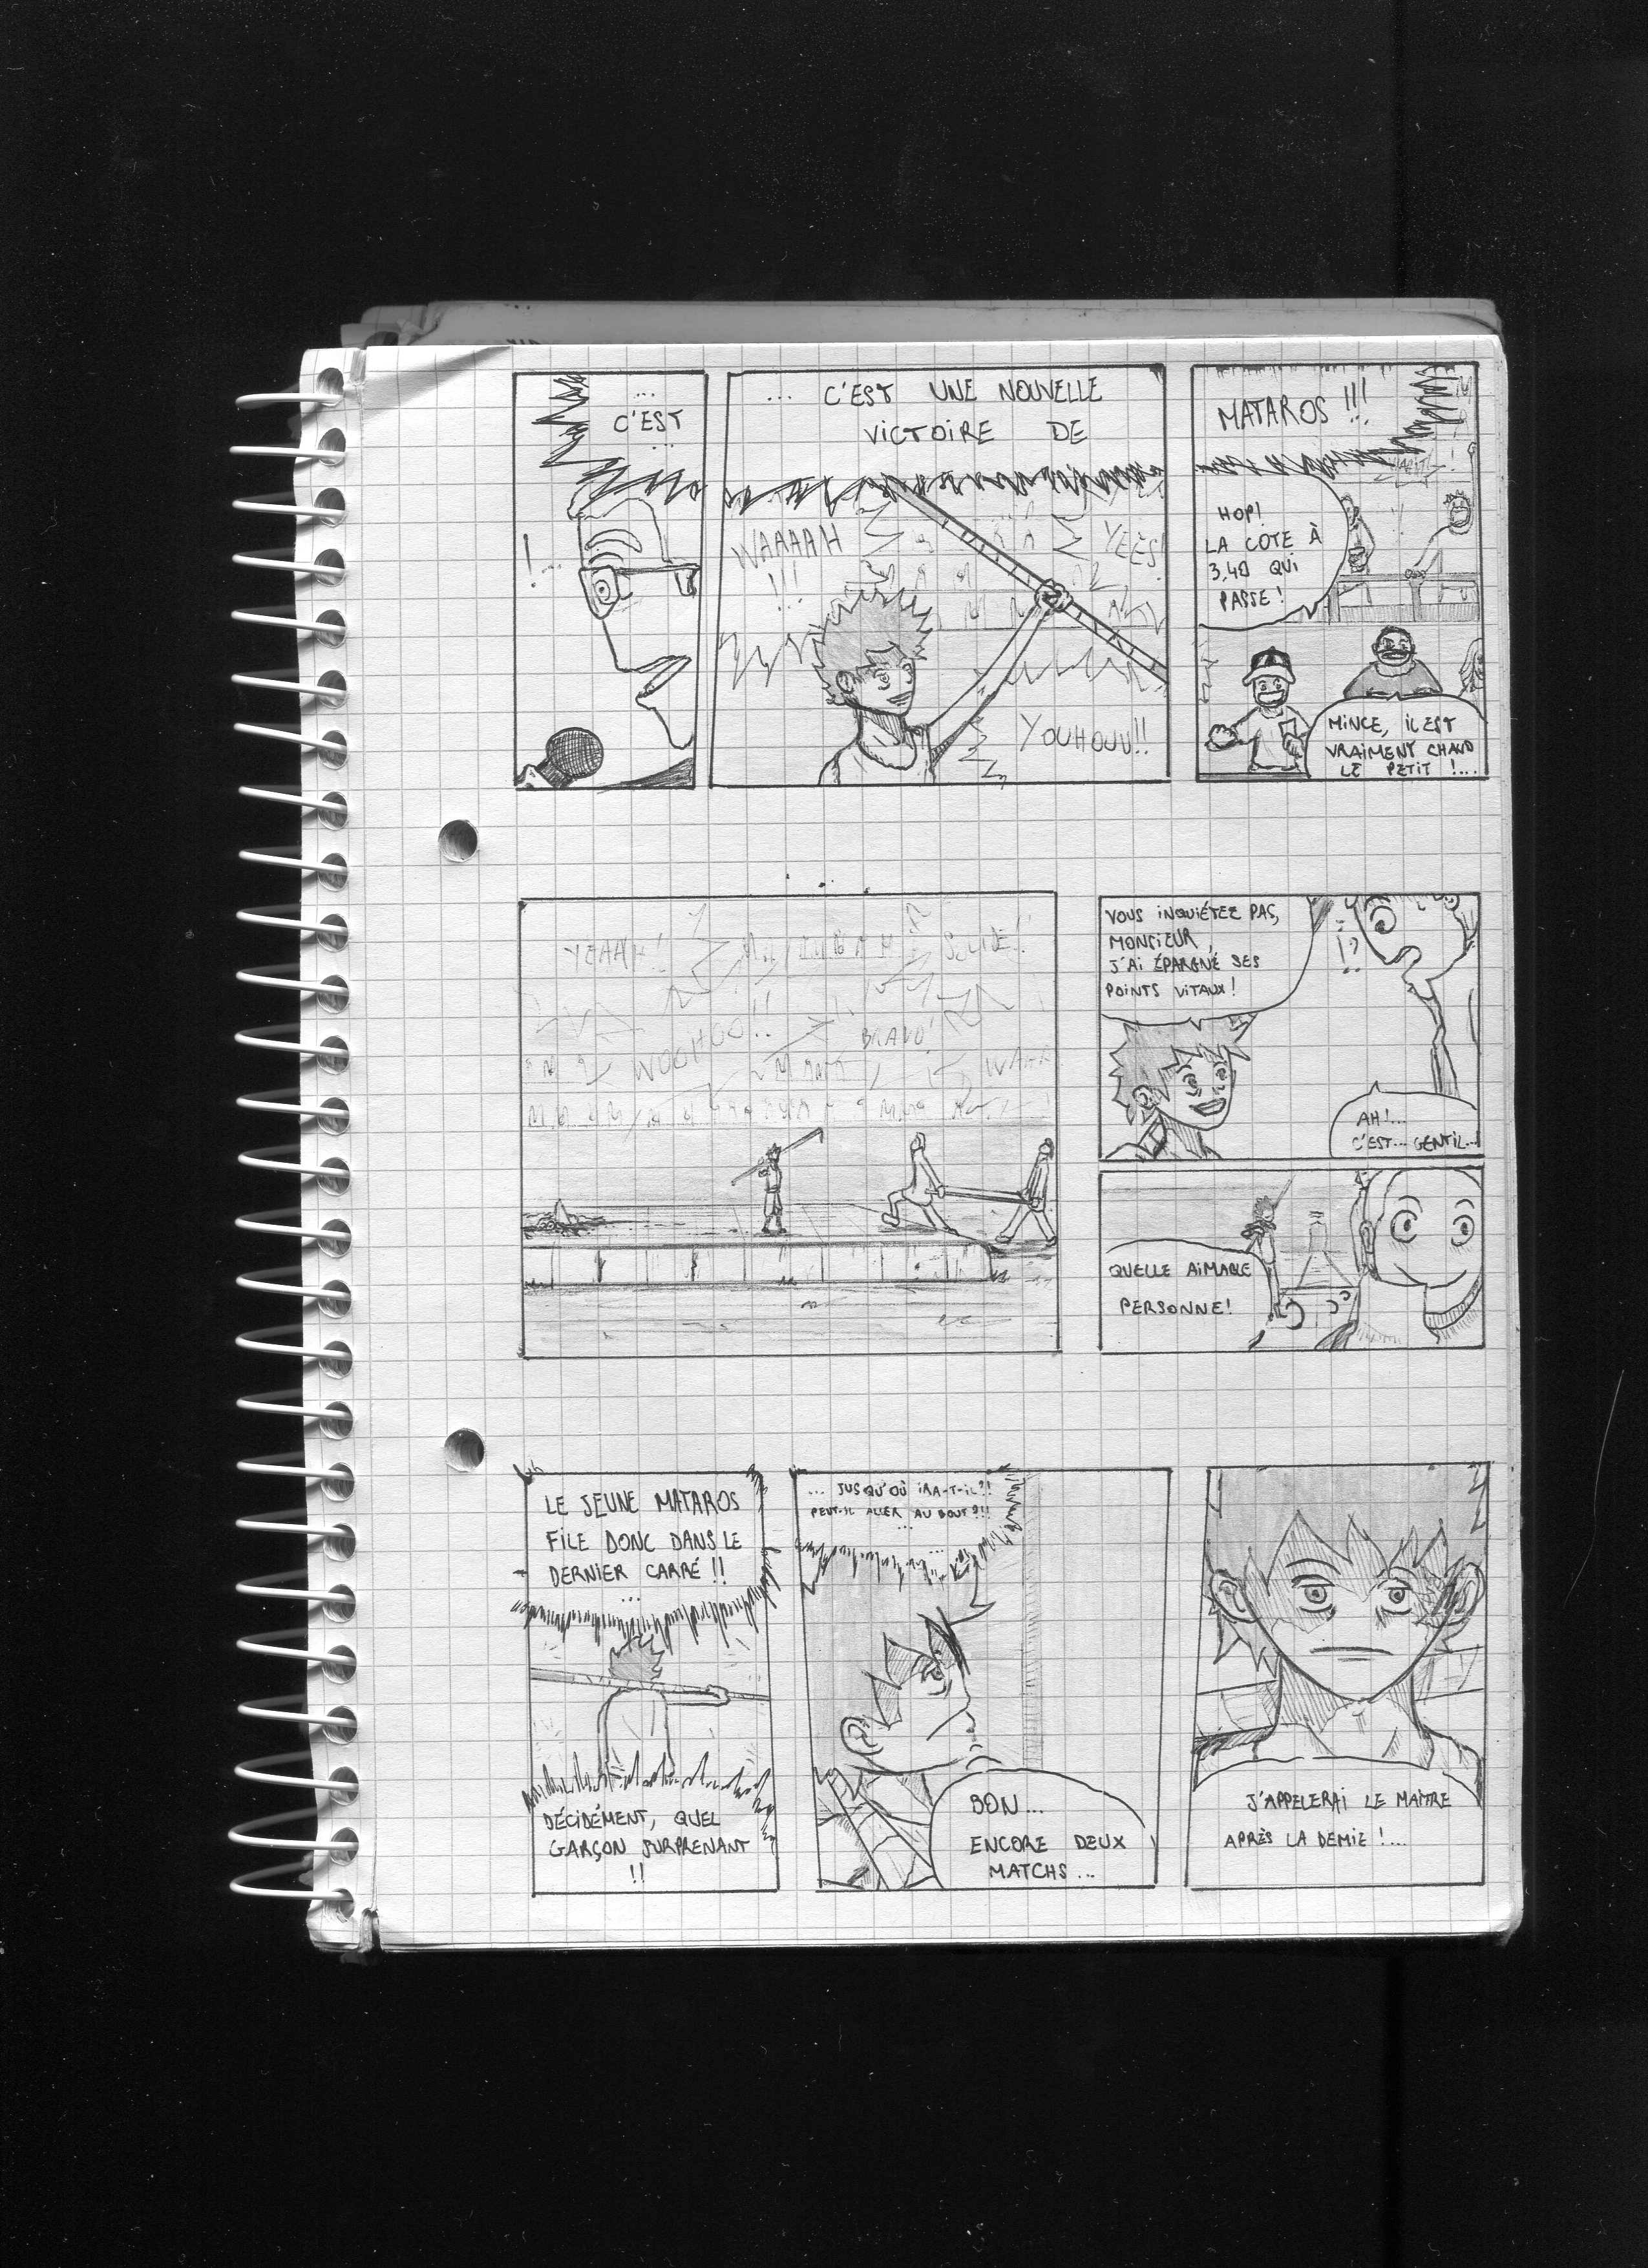 ...
C'EST
...
!
... C'EST UNE NOUVELLE
VICTOIRE DE
WAAAAH
!!!
YEES!
YOUHOUU!!
MATAROS !!!
HOP!
LA COTE À
3,40 QUI
PASSE!
MINCE, IL EST
VRAIMENT CHAUD
LE PETIT !...
YEAAH!
WOOHOO!!
BRAVO!
VOUS INQUIÉTEZ PAS,
MONSIEUR,
J'AI ÉPARGNÉ SES
POINTS VITAUX!
!?
AH!...
C'EST... GENTIL...
QUELLE AIMABLE
PERSONNE!
LE JEUNE MATAROS
FILE DONC DANS LE
DERNIER CARRÉ !!
...
DÉCIDÉMENT, QUEL
GARÇON SURPRENANT
!!
... JUSQU'OÙ IRA-T-IL?!
PEUT-IL ALLER AU BOUT?!!
...
BON...
ENCORE DEUX
MATCHS...
J'APPELERAI LE MAITRE
APRÈS LA DEMIE !...